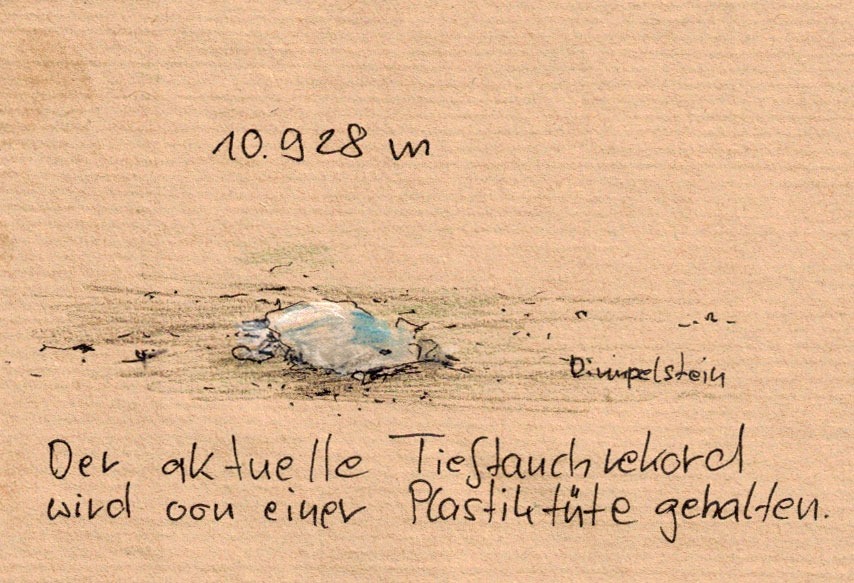 10.928 m
Dimpelstein
Der aktuelle Tieftauchrekord
wird von einer Plastiktüte gehalten.